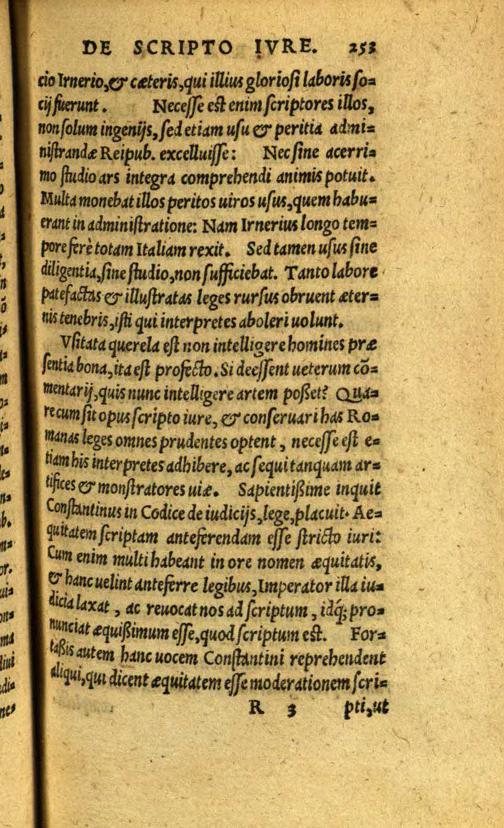 DE SCRIPTO IVRE. 253
cio Irnerio,& cæteris,qui illius gloriosi laboris so=
cij fuerunt. Necesse est enim scriptores illos,
non solum ingenijs, sed etiam usu & peritia admi=
nistrandæ Reipub. excelluisse: Nec sine acerri=
mo studio ars integra comprehendi animis potuit.
Multa monebat illos peritos uiros usus,quem habu=
erant in administratione: Nam Irnerius longo tem=
pore ferè totam Italiam rexit. Sed tamen usus sine
diligentia,sine studio,non sufficiebat. Tanto labore
patefactas & illustratas leges rursus obruent æter=
nis tenebris,isti qui interpretes aboleri uolunt.
Vsitata querela est non intelligere homines præ
sentia bona,ita est profecto. Si deessent ueterum cō=
mentarij,quis nunc intelligere artem poßet? Qua=
re cum sit opus scripto iure, & conseruari has Ro=
manas leges omnes prudentes optent, necesse est e=
tiam his interpretes adhibere, ac sequi tanquam ar=
tifices & monstratores uiæ. Sapientißime inquit
Constantinus in Codice de iudicijs,lege,placuit. Ae=
quitatem scriptam anteferendam esse stricto iuri:
Cum enim multi habeant in ore nomen æquitatis,
& hanc uelint anteferre legibus,Imperator illa iu=
dicia laxat, ac reuocat nos ad scriptum, idq; pro=
nunciat æquißimum esse,quod scriptum est. For=
taßis autem hanc uocem Constantini reprehendent
aliqui,qui dicent æquitatem esse moderationem scri=
R 3 pti,ut